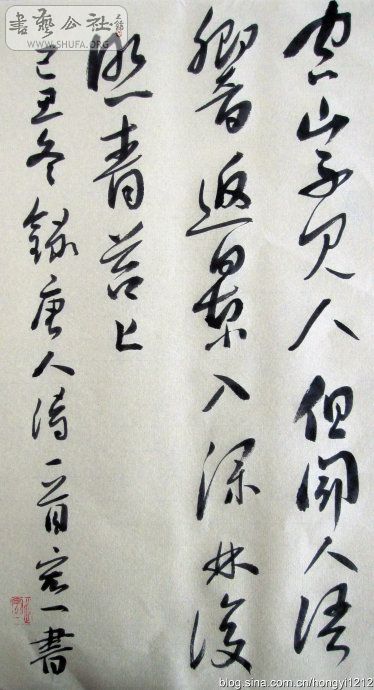 空山不见人但闻人语
响音返景入深林复
照青苔上
己丑冬录唐人诗一首宏一书
書藝公社
WWW.SHUFA.ORG
blog.sina.com.cn/hongyi1212